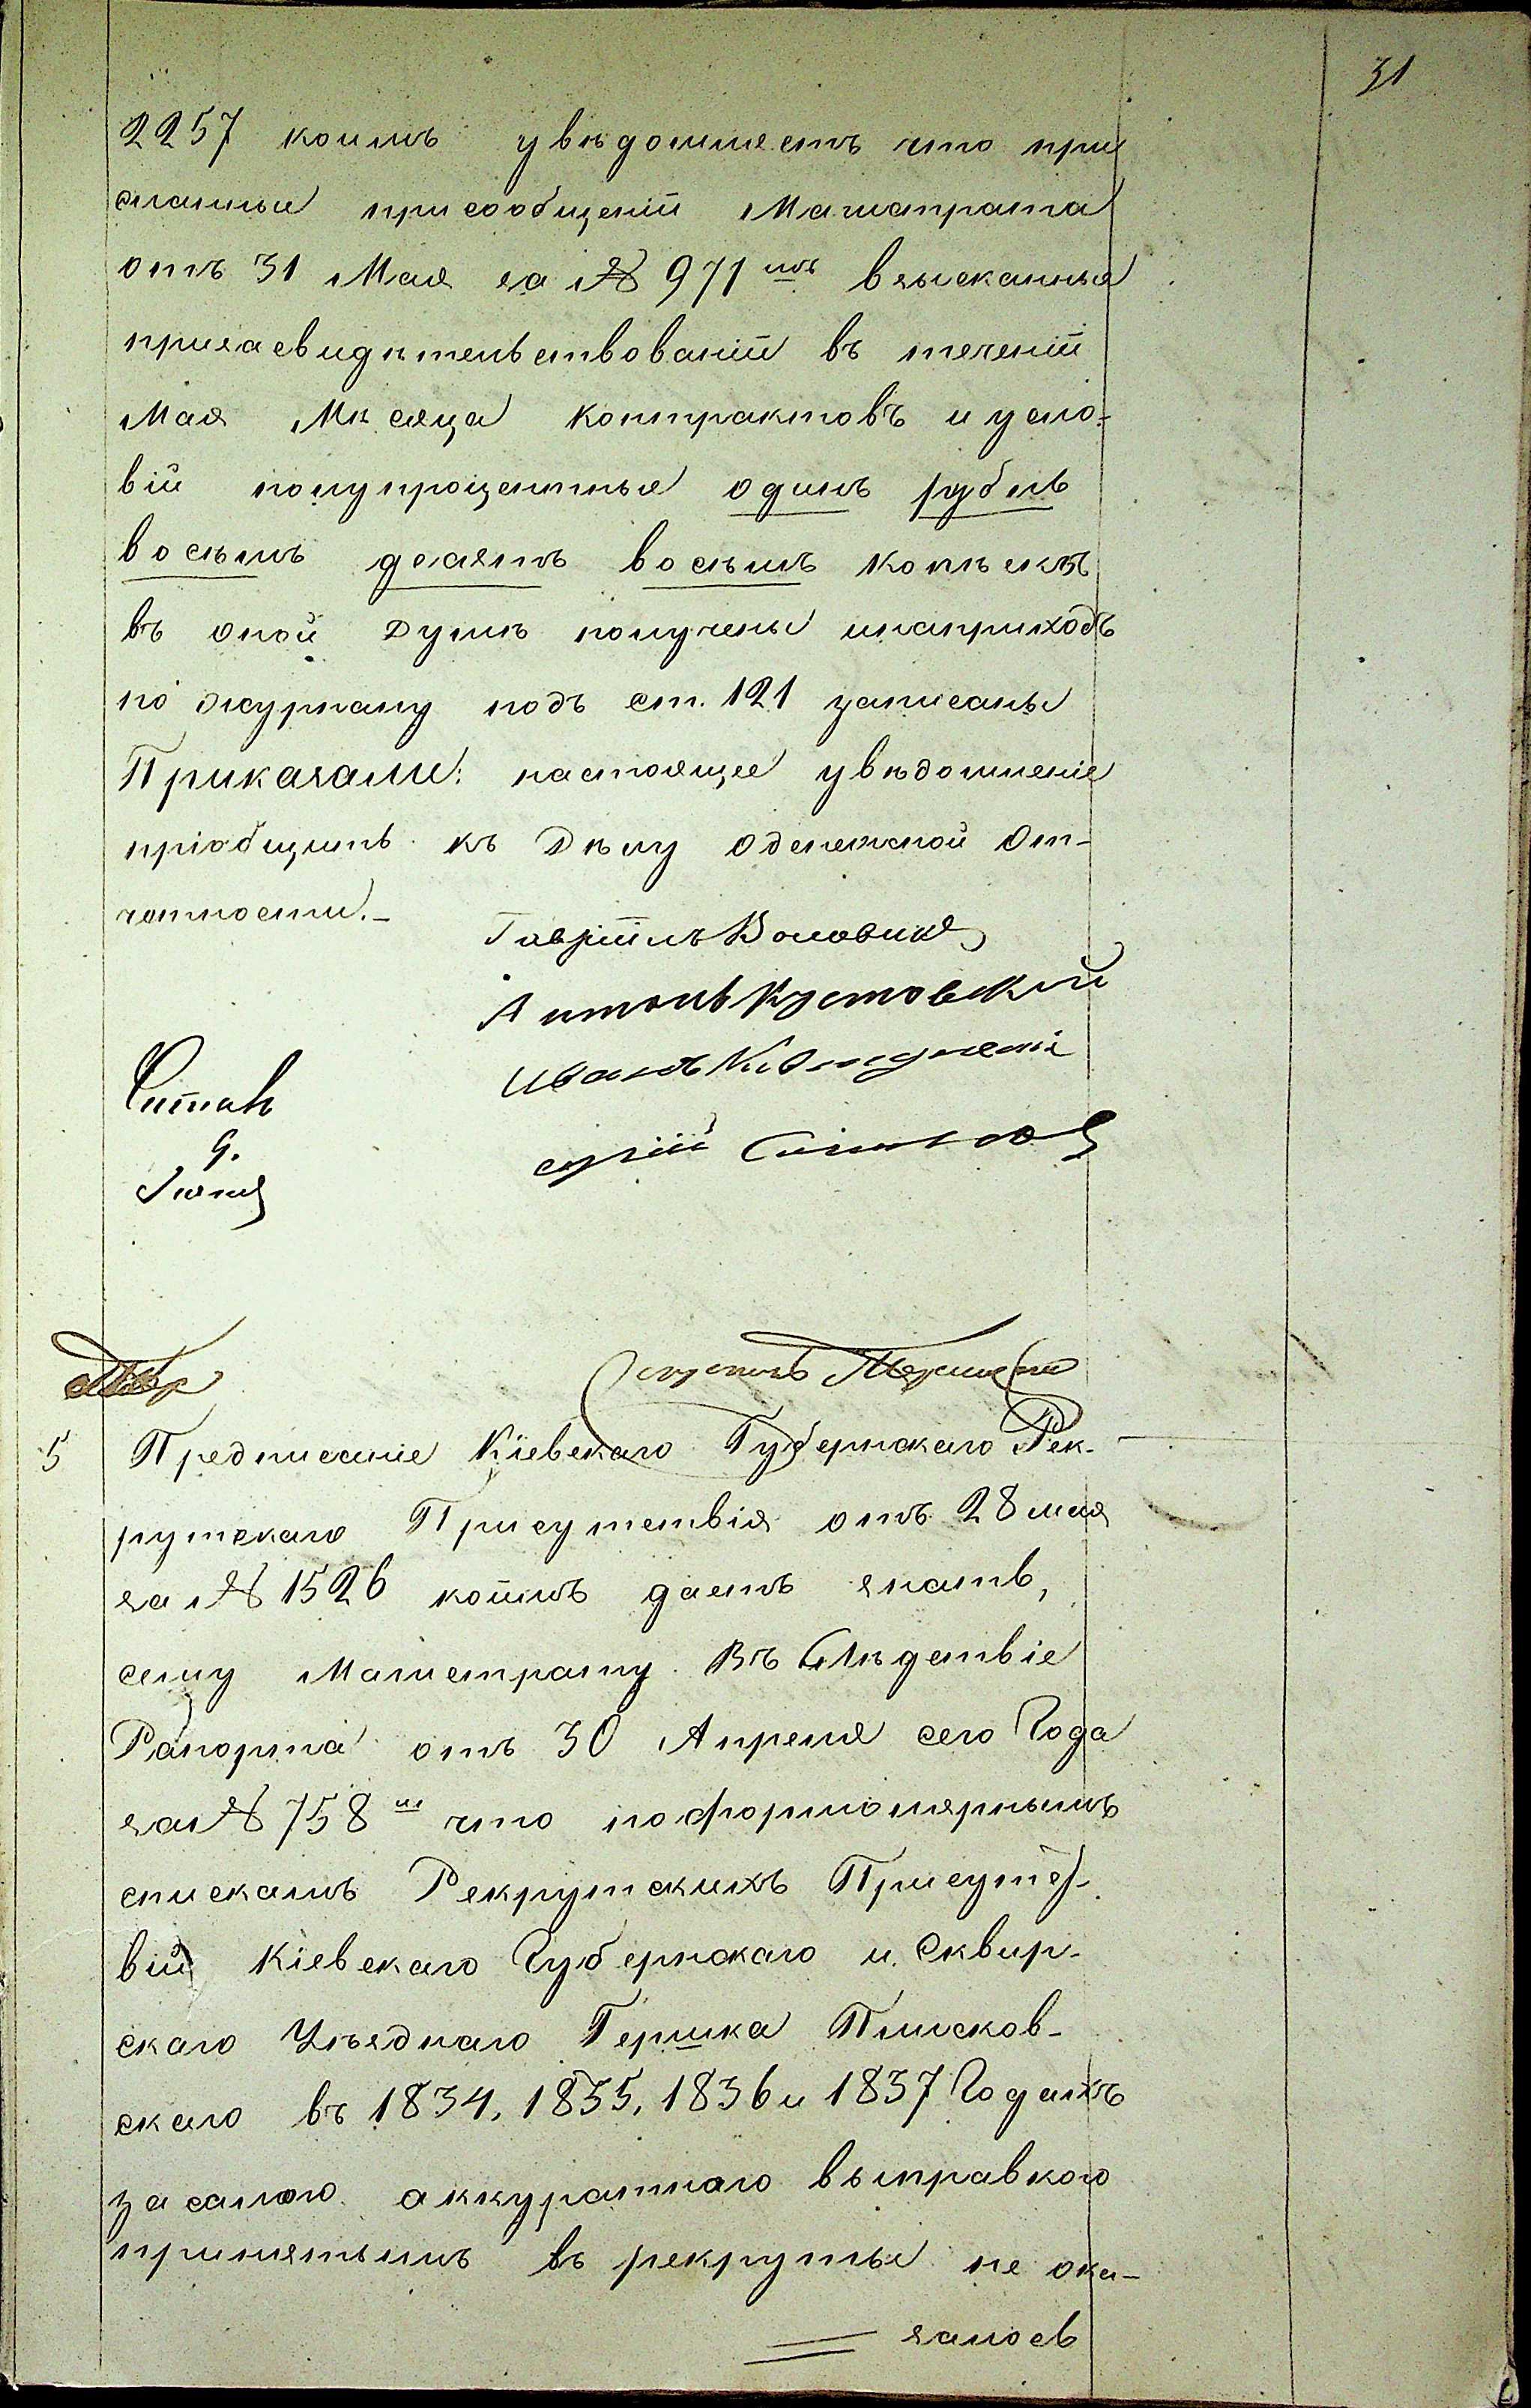 31
2257 коимъ увѣдомляетъ что при
сланные присообщеніи Магистрата
отъ 31 Мая за № 971мъ взысканные
призасвидѣтельствованіи въ теченіи
Мая Мѣсяца контрактовъ и усло-
вій полупроцентные одинъ рубль
восѣмъ десятъ восѣмъ копѣекъ
въ оной Думѣ получены инаприходъ
по журналу подъ ст. 121 записаны
Приказали: настоящее увѣдомленіе
пріобщить къ Дѣлу оденежной От-
чотности.-
Гавріилъ
Антонъ Кустовскій
Иванъ
Сергій
Читалъ
9.
Іюня
5 Предписаніе Кіевскаго Губернскаго Рек-
рутскаго Присутствія отъ 28 мая
за № 1526 коимъ даетъ знать,
сему Магистрату. Въ Слѣдствіе
Рапорта отъ 30 Апреля сего Года
за № 758м что поформолярнымъ
спискамъ Рекрутскихъ Присутст-
вій Кіевскаго Губернскаго и Сквир-
скаго Уѣзднаго Гершка Плисков-
скаго въ 1834, 1835, 1836 и 1837 Годахъ
засамою аккуратною выправкою
принятымъ въ рекруты не ока-
залось